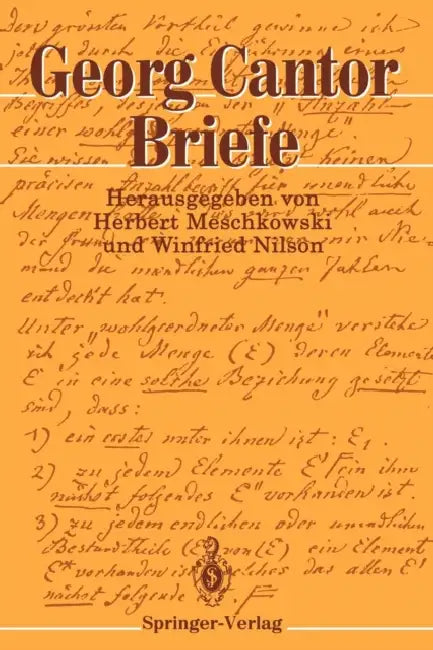 Den grössten Vortheil gewinne ich
jetzt durch die Einführung eines
Georg Cantor
Begriffes, desjenigen der „Anzahl
einer wohlgeordneten Menge"
Briefe
Sie wissen keinen
präcisen Anzahlbegriff für unendliche
Herausgegeben von
Herbert Meschkowski
und Winfried Nilson
Mengen wohl auch
der Grund mir Nie-
mand die unendlichen ganzen Zahlen
entdeckt hat.
Unter „wohlgeordneter Menge" verstehe
ich jede Menge (E) deren Elemente
E in eine solche Beziehung gesetzt
sind, dass:
1) ein erstes unter ihnen ist: E₁.
2) zu jedem Elemente E' ein ihm
nächst folgendes E" vorhanden ist.
3) zu jedem endlichen oder unendlichen
Bestandtheile (E') von (E) ein Element
E" vorhanden ist welches das allen E'
nächst folgende
Springer-Verlag